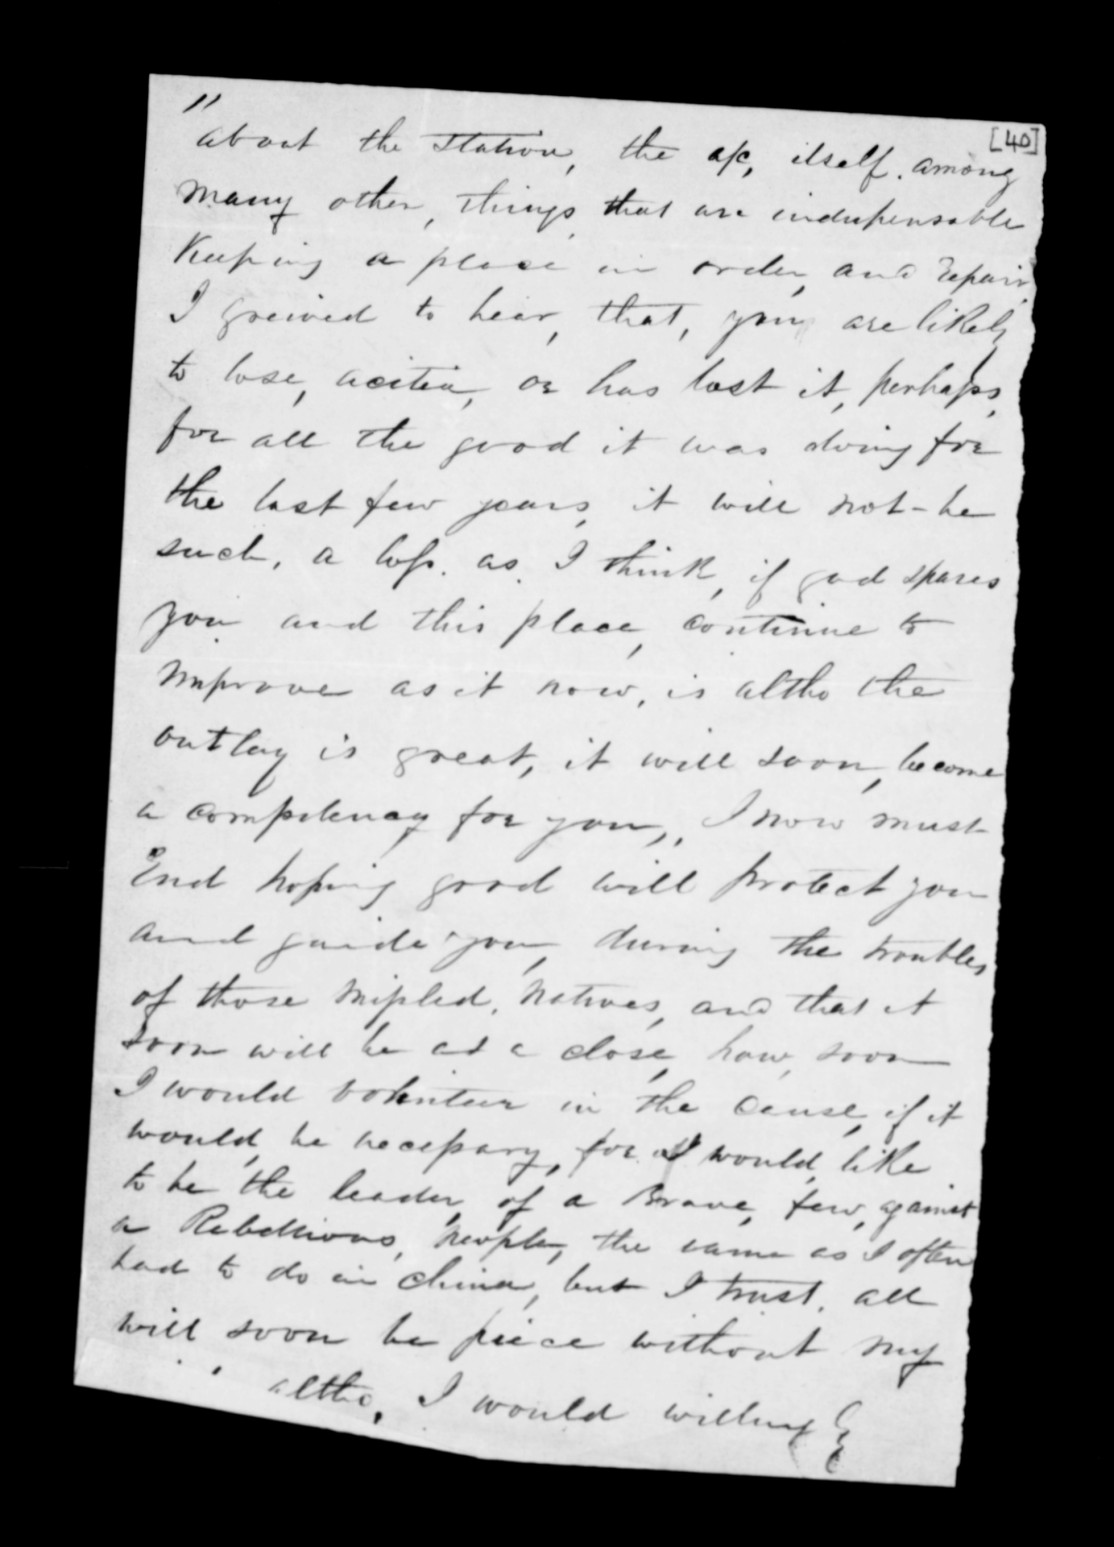 "
[40]
about the station, the a/c, itself. among
many other, things, that are indispensable
Keeping a place in order, and repair,
I greived to hear, that, you are likely
to lose, acitia, or has lost it, perhaps,
for all the good it was doing for
the last few years, it will not - be
such, a loss. as. I think, if god spares
you and this place, continue to
improve as it now, is altho the
outlay is great, it will soon, become
a compitency for you,, I now must
End hoping good will protect you
and guide you, during the troubles
of those natives, and that it
soon will be at a close, how, soon
I would volenteer in the cause, if it
would, be necessary, for I would, like
to be the leader, of a Brave, few, against
a Rebellious, people, the same as I often
had to do in China, but I trust. all
will soon be piece without my
altho, I would willing